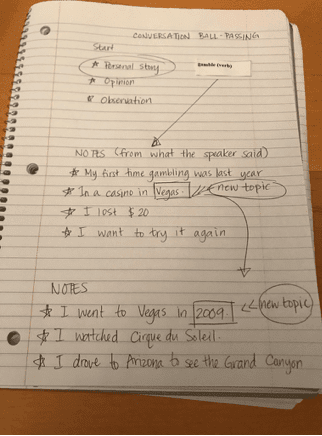 CONVERSATION BALL-PASSING
Start
★ Personal Story
★ Opinion
★ Observation
gamble (verb)
NOTES (from what the speaker said)
★ My first time gambling was last year
★ In a casino in Vegas. new topic
★ I lost $20
★ I want to try it again
NOTES
★ I went to Vegas in 2009. << new topic
★ I watched Cirque du Soleil.
★ I drove to Arizona to see the Grand Canyon